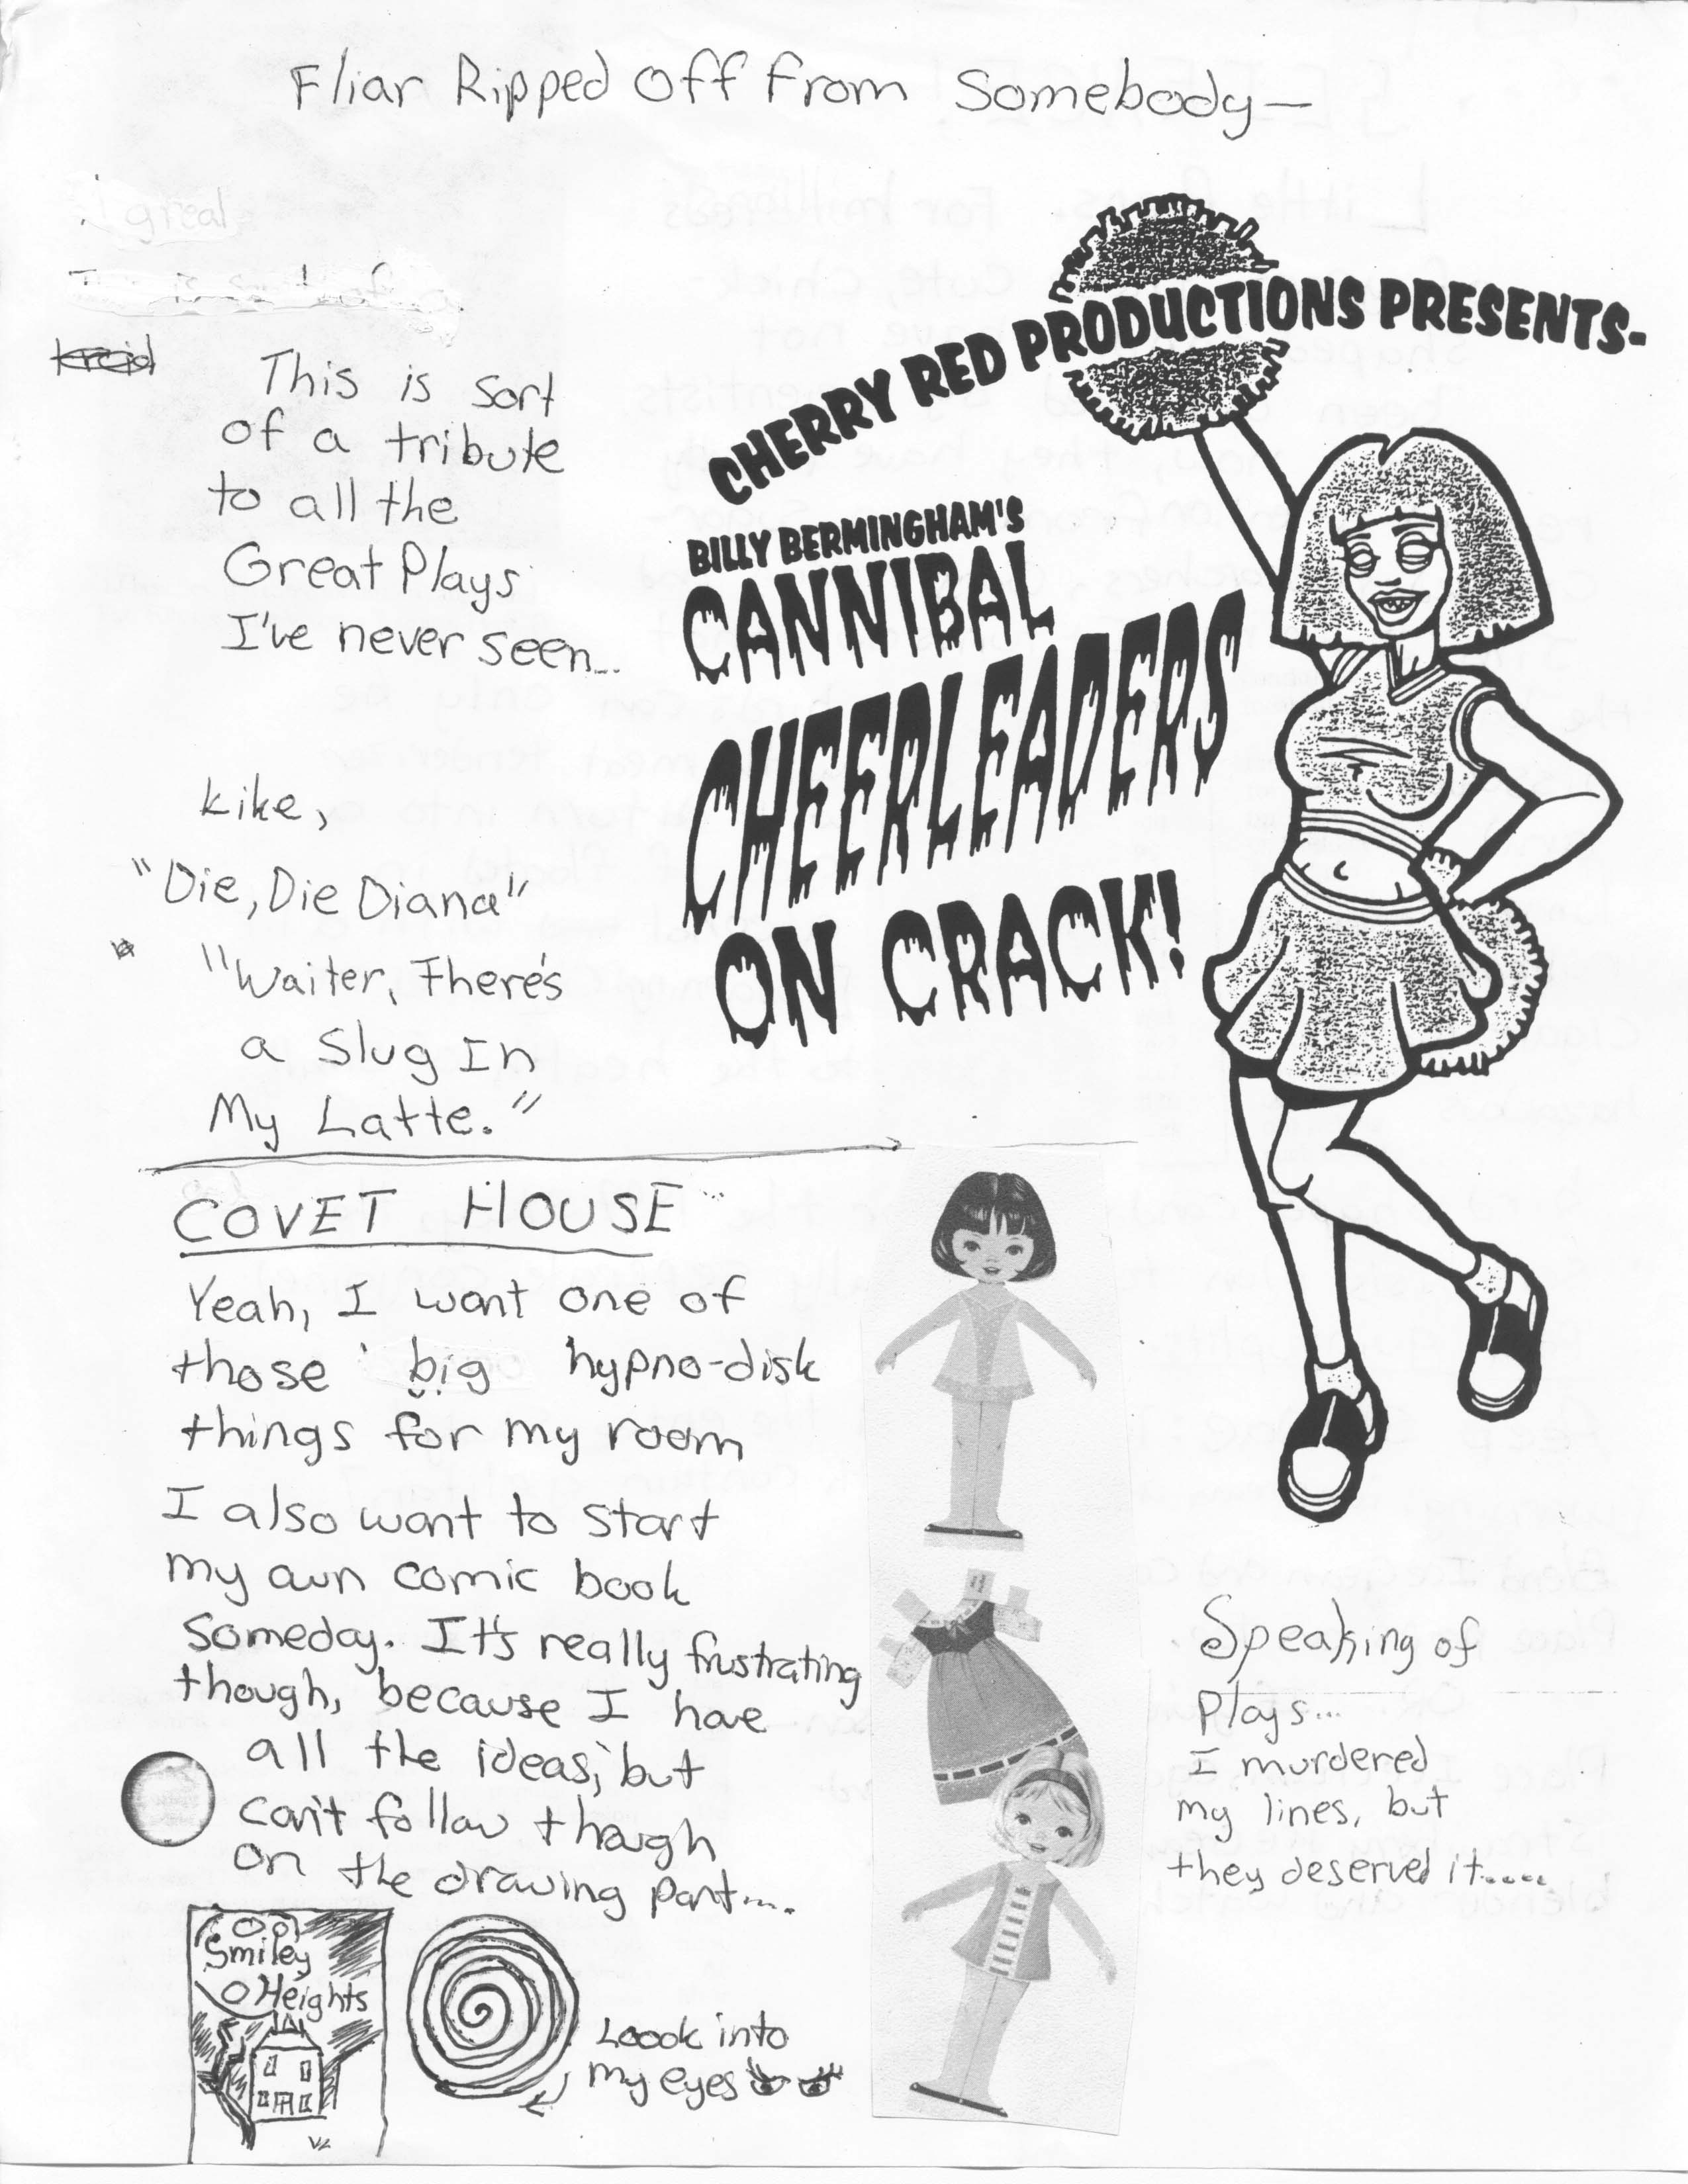 Fliar Ripped Off From Somebody—
great
This is sort
of a tribute
to all the
Great Plays
I've never seen...
Like,
"Die, Die Diana"
"Waiter, There's
a Slug In
My Latte."
CHERRY RED PRODUCTIONS PRESENTS-
BILLY BERMINGHAM'S
CANNIBAL
CHEERLEADERS
ON CRACK!
COVET HOUSE
Yeah, I want one of
those big hypno-disk
things for my room
I also want to start
my own comic book
Someday. It's really frustrating
though, because I have
all the ideas, but
can't follow though
on the drawing part....
Smiley
Heights
Loook into
my eyes
Speaking of
Plays...
I murdered
my lines, but
they deserved it.....